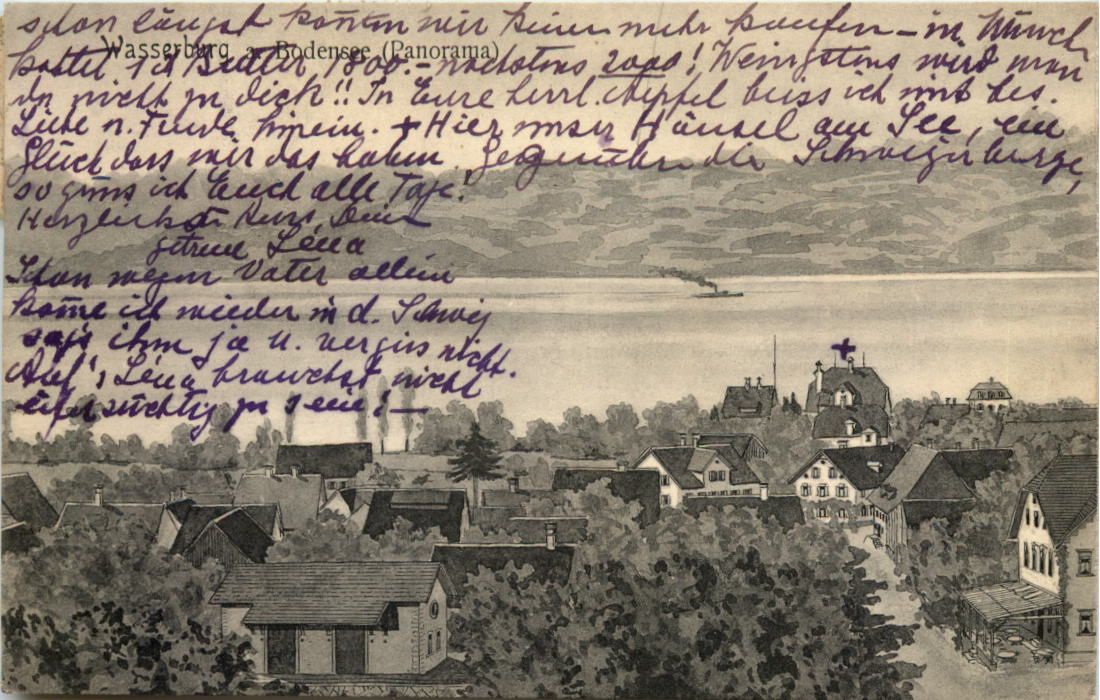 schon längst könnten wir keinen mehr kaufen – in Münch
Wasserburg a. Bodensee (Panorama)
kostet 1 ℔ Butter 1800.– nächstens 2000! Wenigstens wird man
da nicht zu dick!! In Eure herrl. Aepfel beiss ich mit bes.
Liebe u. Freude hinein. + Hier unser Häusel am See, ein
Glück dass wir das haben. Gegenüber die Schweizerberge,
so grüss ich Euch alle Tage!
Herzlichst Kuss, Deine
getreue Léna
Schon wegen Vater allein
kome ich wieder in d. Schweiz
sag's ihm ja u. vergiss nicht.
Léna brauchst nicht
eifersüchtig zu sein! –